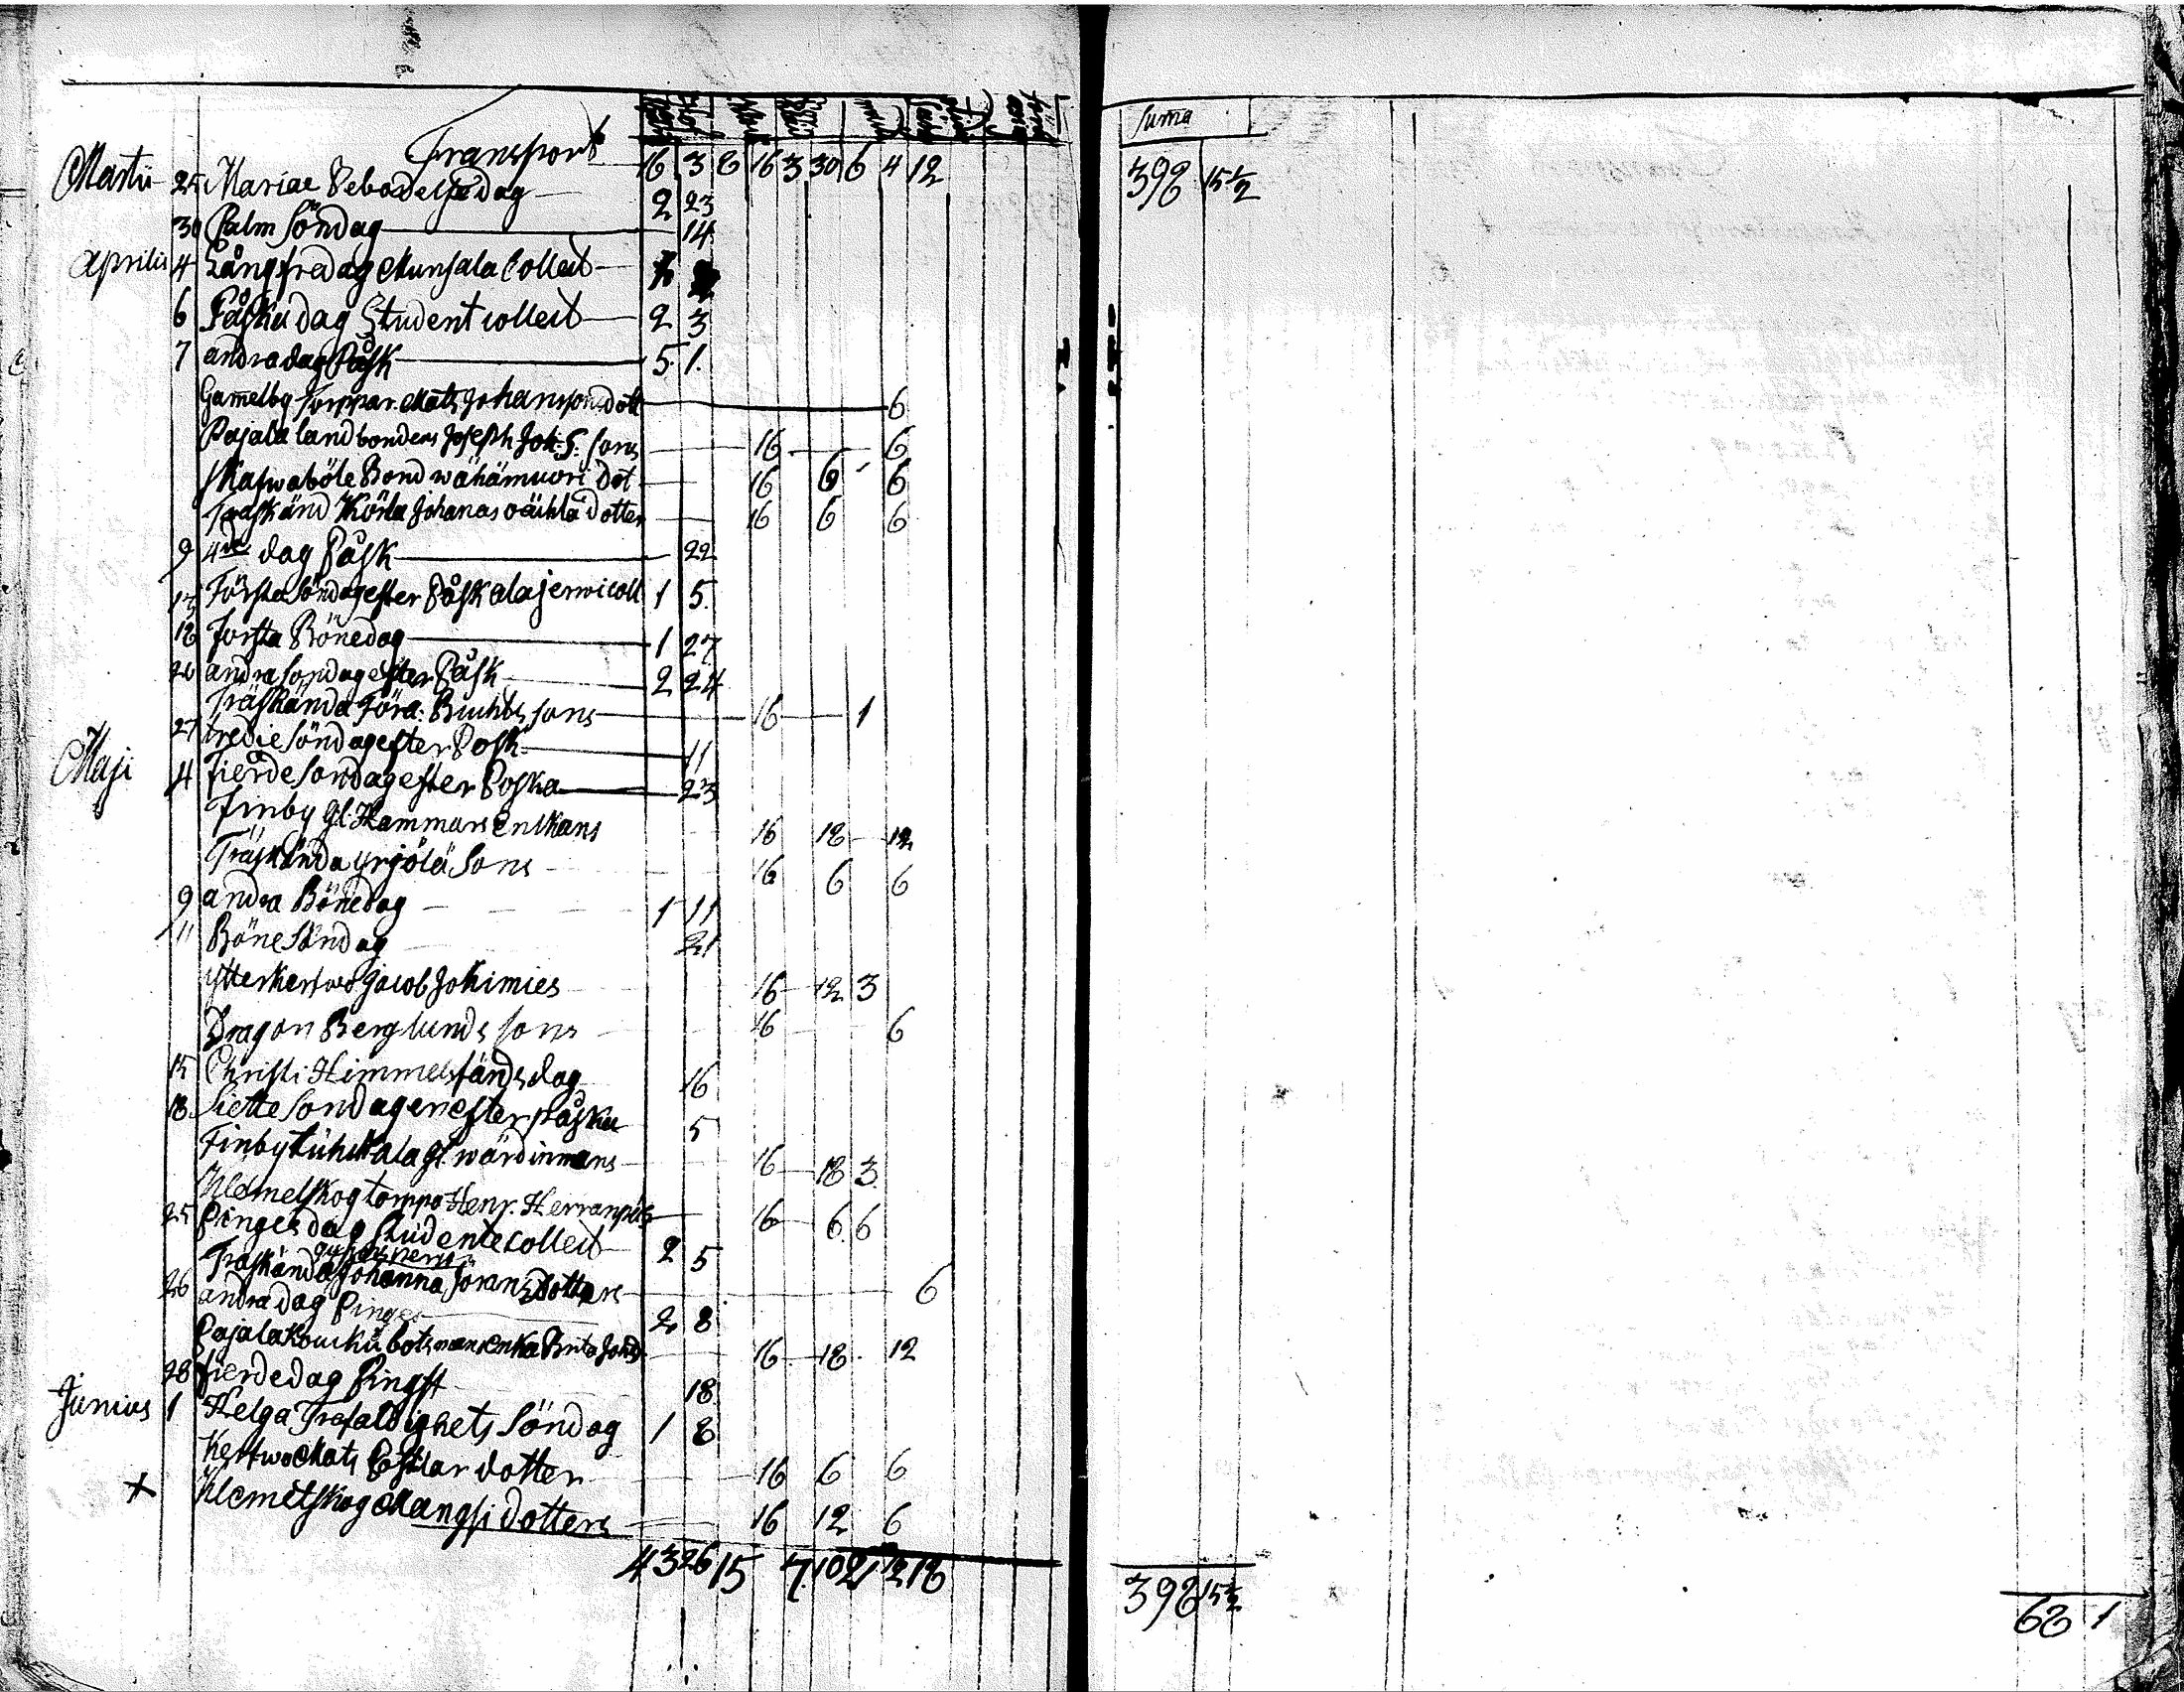 Suma
Transport 16 3 8 16 3 30 6 4 12 398 15½
Martii 25 Mariae Bebodelsedag 2 23
30 Palm Söndag 14
Aprilis 4 Långfredag Munsala Collect
6 Påskadag Student collect 2 3
7 andra dag Påsk 5 1
Gamelby Torppar. Mats Johanssons dott 6
Pajala landbondens Joseph Joh: S: sons 16 6
Skafwaböle Bond wähämuori Dot 16 6 6
Traskänd Johanas dotter 16 6 6
9 4de dag Påsk 22
13 Första Söndag efter Påsk alajerwi coll 1 5
18 Forsta Bönedag 1 27
20 andra sondag efter Påsk 2 24
Träskända Göra: Buchts sons 16 1
27 tredie söndag efter Posk 11
Maji 4 Fierde sondag efter Poska 23
Finby Gl. Hammars Enkans 16 18 12
Träskända yrjölä Sons 16 6 6
9 andra Bönedag 1 11
11 Böne Söndag 21
Ytterkertwo Jacob Johimies 16 12 3
Dragon Berglunds sons 16 6
15 Christi Himmelsfänds dag 16
18 Siette Sondagen efter påska 5
Finby gl. wärdinnans 16 18 3
Klemetskog torppa Henr. 16 6 6
25 Pinges dag Studente Collect 2 5
Traskända Johanna Jörans Dotters 6
26 andra dag Pinges 2 8
Pajala Kouckü botsman enka Brita 16 18 12
28 fierde dag Pingst 18
Junius 1 Helga Trefaldighets Söndag 1 8
Kertwo Mats dotter 16 6 6
+ Klemetskog Mangsi dotters 16 12 6
43 26 15 7 10 21 12 18 398 15½ 68 1